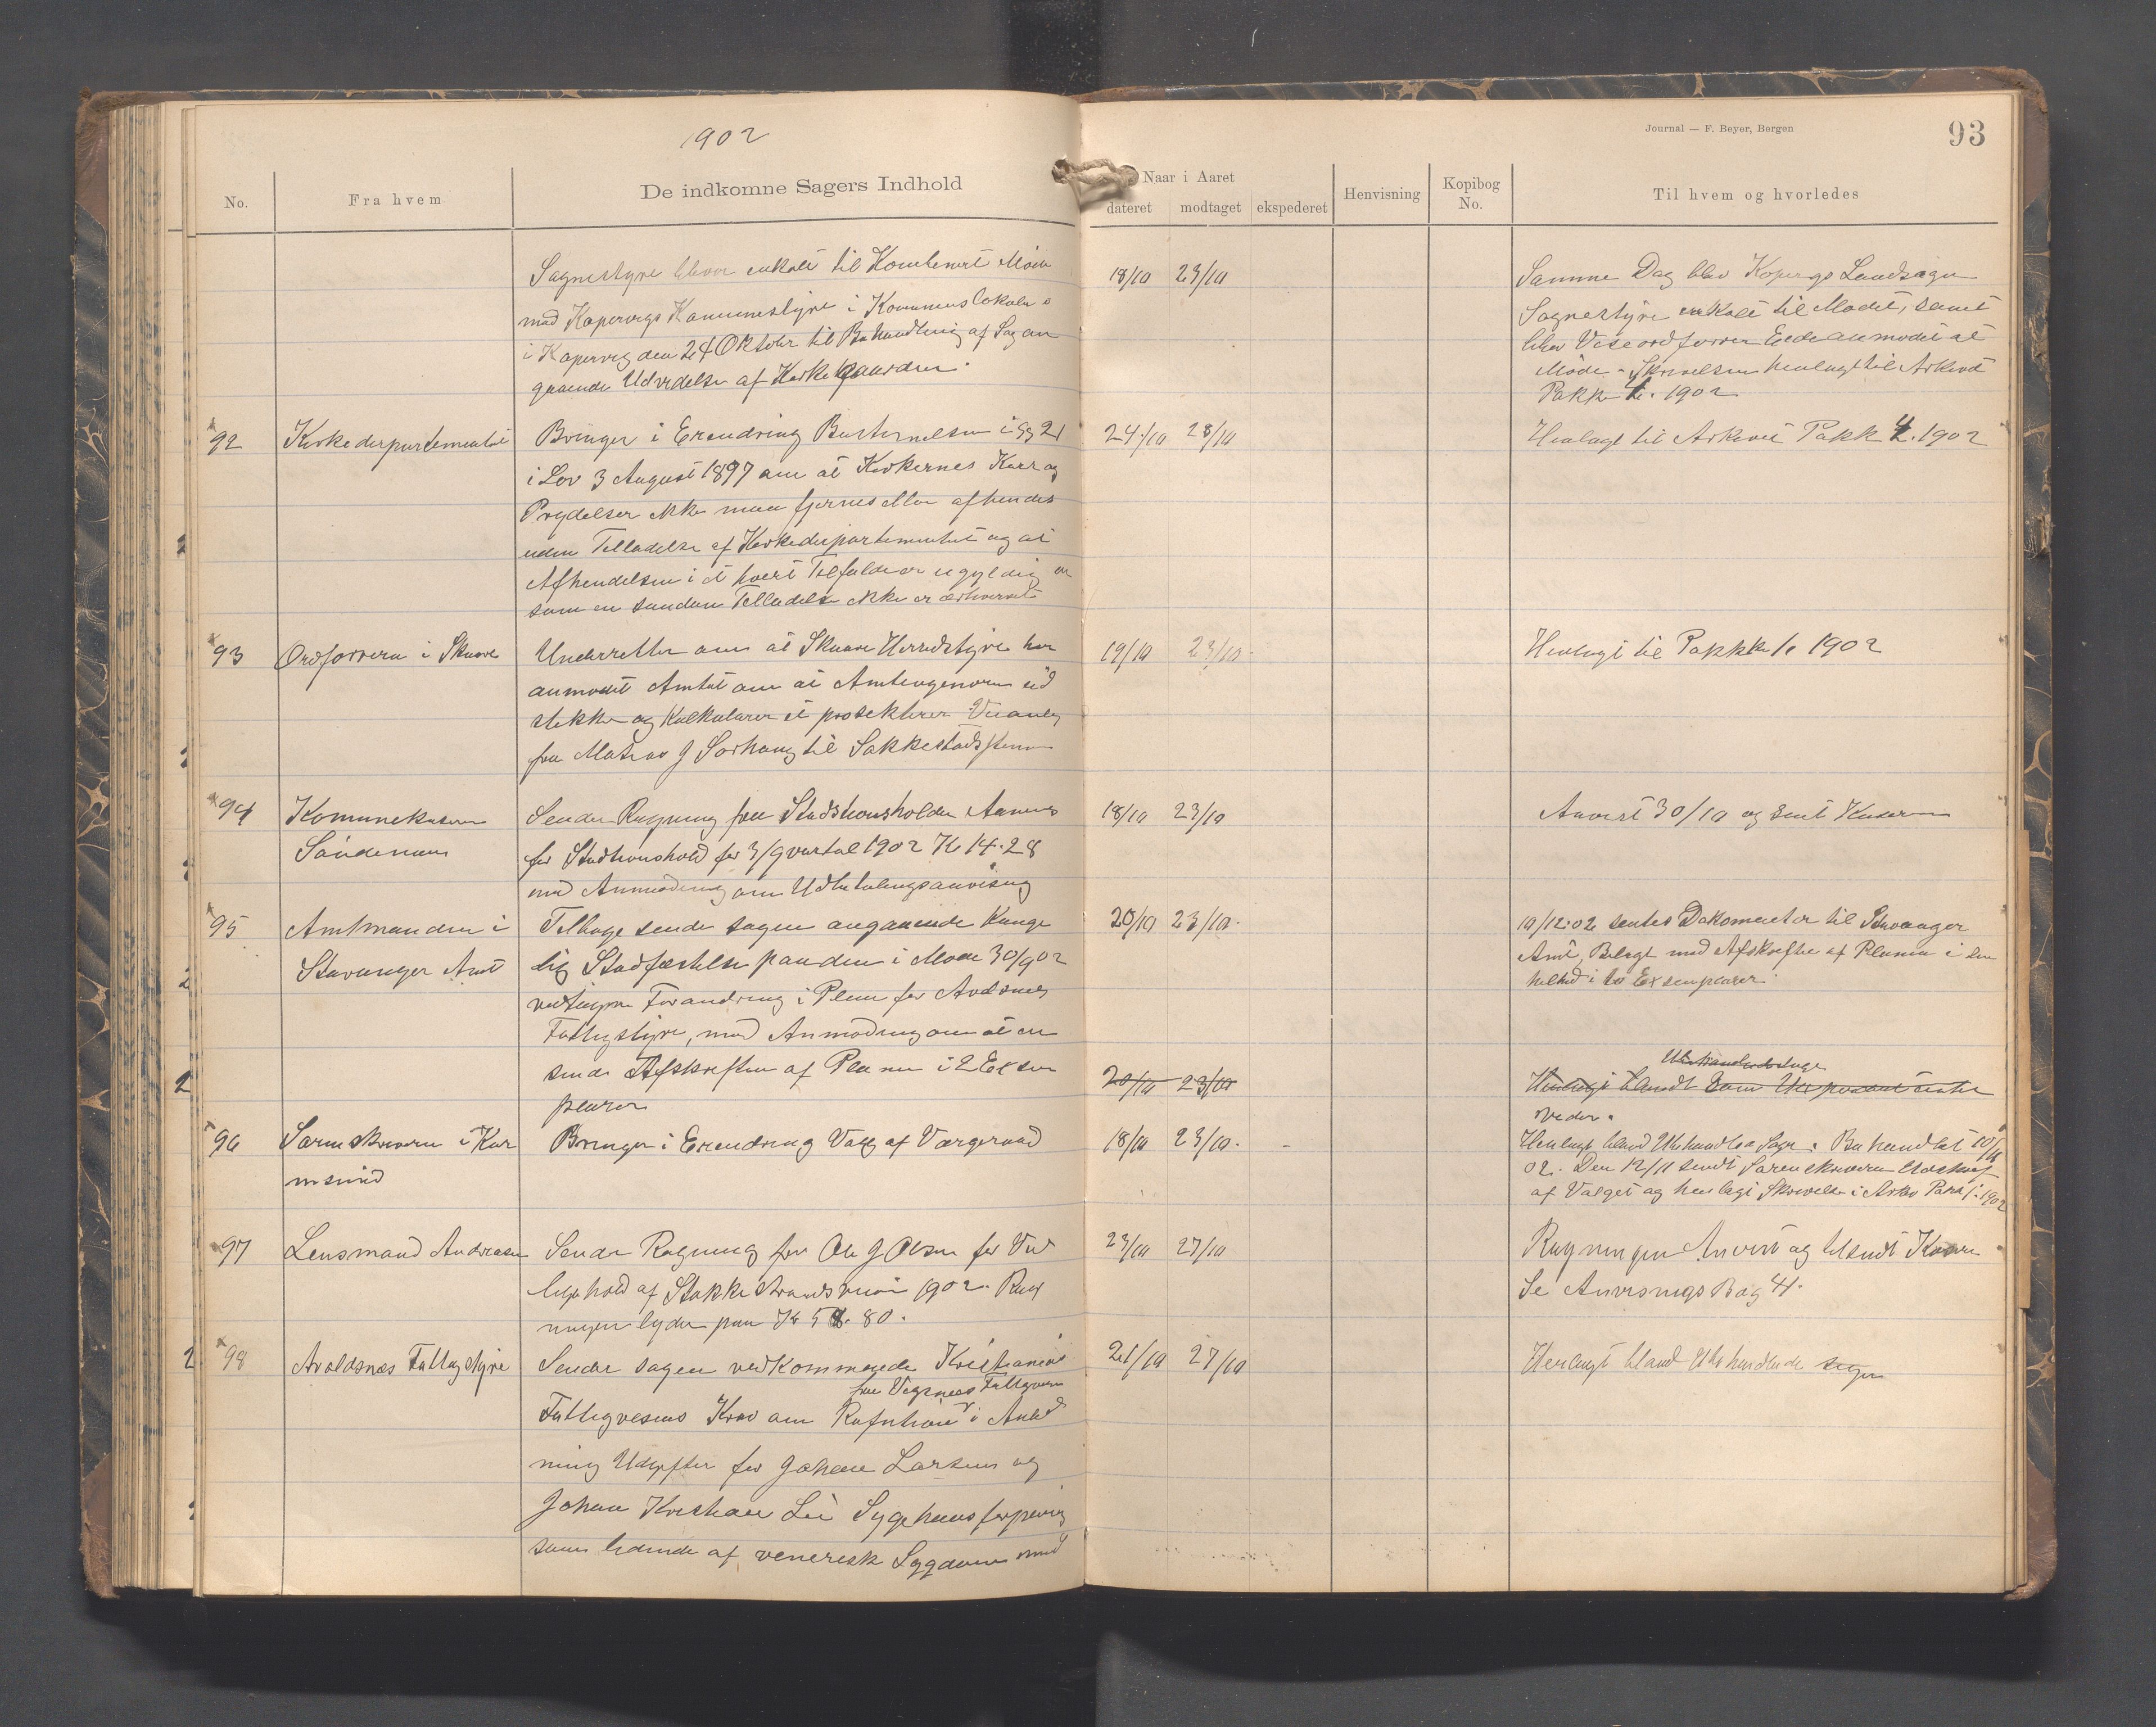 902
Journal — F. Beyer, Bergen
93
No.
Fra hvem
De indkomne Sagers Indhold
Naar i Aaret
dateret
modtaget
ekspederet
Henvisning
Kopibog
No.
Til hvem og hvorledes
Sognestyre bliver til Møde
med Kopervigs Kommunestyre i Kommunelokalet
i Kopervig den 24 Oktober til Behandling af Sag an
gaaende Udvidelse af Kirkegaarden.
18/10 23/10
Samme Dag blev Kopervigs Landsogn
Sognestyre til Mødet, samt
blev Viseordfører Eide anmodet at
Møde - Skrivelsen henlagt til Arkivet
Pakke 1902
92
Kirkedepartementet
Bringer i Erindring Bestemmelsen i § 21
i Lov 3 August 1897 om at Kirkernes Kar og
Prydelser ikke maa fjernes eller afhendes
uden Tilladelse af Kirkedepartementet og at
Afhendelsen i et hvert Tilfælde er ugyldig
som en saadan Tilladelse ikke er erhvervet
24/10 28/10
Henlagt til Arkivet Pakk 4. 1902
93
Ordføreren i Skaare
Underretter om at Skaare Herredstyre har
anmodet Amtet om at Amtsingeniøren ud
stikke og Kalkulerer et Veianlæg
fra Matr no 9 Sørhaug til
19/10 23/10
Henlagt til Pakke 1902
94
Komunekasserer
Sender Regning fra
for 3/ qvartal 1902 Kr 14.28
med Anmodning om Udbetalingsanvisning
18/10 23/10
Anvist 30/10 og sent Kasseren
95
Amtmanden i
Stavanger Amt
Tilbage sender sagen angaaende Konge
lig Stadfæstelse paa den i Møde 30/9 02
Forandring i Plan for Avaldsnes
Fattigstyre, med Anmodning om at
sende Afskriften af Planen i 2 Eksem
plarer
20/10 23/10.
10/12.02 sentes Dokomenter til Stavanger
Amt, Bilagt med Afskrifter af Planen i sin
helhed i to Exemplarer.
20/10 23/10
veder.
96
Sorenskriveren i Kar
msund
Bringer i Erindring Valg af Værgeraad
18/10 23/10.
Henlagt bland Ubehandlede Sager. Behandlet 10/11
02. Den 12/11 sendt Sorenskriveren Udskrift
af Valget og henlagt Skrivelse i Arkiv Pakk 1902
97
Lensmand Andreasen
Sender Regning fra Ole J Olsen for Ved
ligehold af 1902. Reg
ningen lyder paa Kr 80.
23/10 27/10
Regningen Anvist og tilsendt Kasserer
Se Anvisnings Bog 4.
98
Avaldsnæs Fattigstyre
Sender sagen vedkommende Kristiania
fra Fattigvæsen
Fattigvesens Krav om Refutsion i Anled
ning Udgifter for Johan Larsen og
Johan Kristian Sygehusforpleining
som lidende af venerisk Sygdom med
21/10 27/10
Henlagt bland Ubehandlede sager